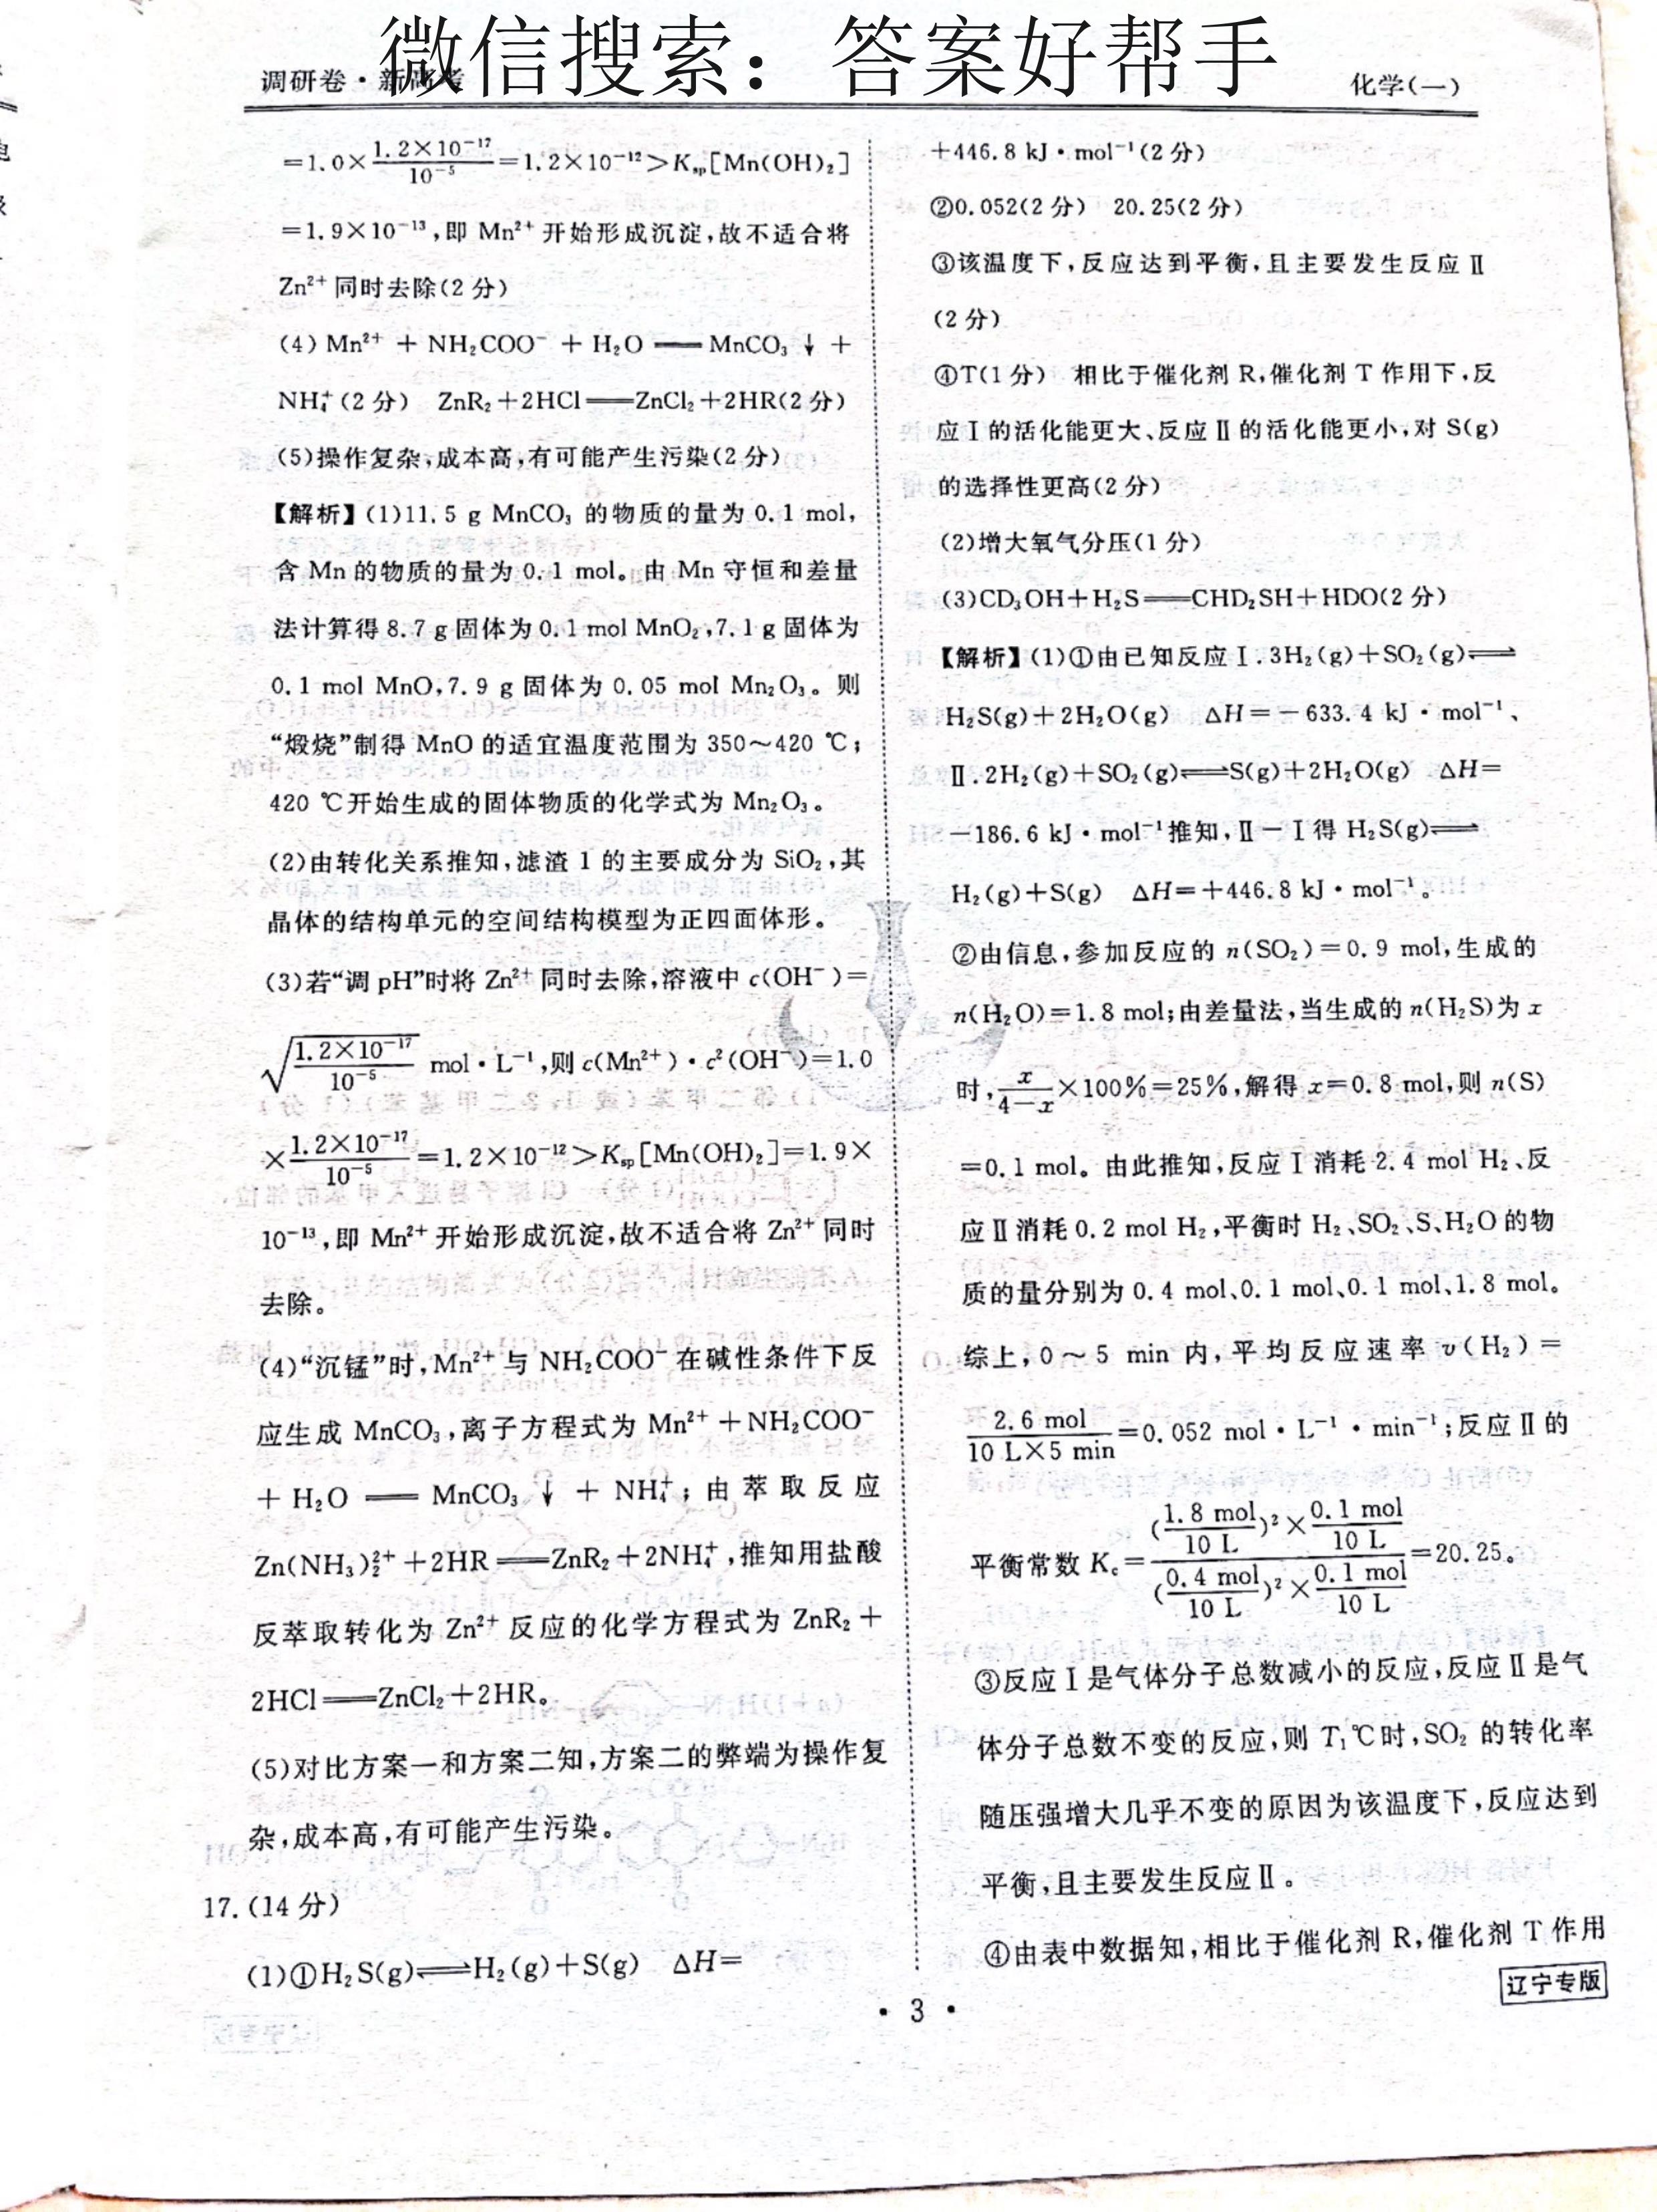 微信搜索：答案好帮手
调研卷·新高考
化学(一)
=1.0×1.2×10⁻¹⁷/10⁻⁵=1.2×10⁻¹²>Ksp[Mn(OH)₂]
=1.9×10⁻¹³,即 Mn²⁺ 开始形成沉淀,故不适合将
Zn²⁺ 同时去除(2 分)
(4) Mn²⁺ + NH₂COO⁻ + H₂O ══ MnCO₃ ↓ +
NH₄⁺(2 分) ZnR₂+2HCl══ZnCl₂+2HR(2 分)
(5)操作复杂,成本高,有可能产生污染(2 分)
【解析】(1)11.5 g MnCO₃ 的物质的量为 0.1 mol,
含 Mn 的物质的量为 0.1 mol。由 Mn 守恒和差量
法计算得 8.7 g 固体为 0.1 mol MnO₂,7.1 g 固体为
0.1 mol MnO,7.9 g 固体为 0.05 mol Mn₂O₃。则
“煅烧”制得 MnO 的适宜温度范围为 350～420 ℃;
420 ℃开始生成的固体物质的化学式为 Mn₂O₃。
(2)由转化关系推知,滤渣 1 的主要成分为 SiO₂,其
晶体的结构单元的空间结构模型为正四面体形。
(3)若“调 pH”时将 Zn²⁺ 同时去除,溶液中 c(OH⁻)=
√(1.2×10⁻¹⁷/10⁻⁵) mol·L⁻¹,则 c(Mn²⁺)·c²(OH⁻)=1.0
×1.2×10⁻¹⁷/10⁻⁵=1.2×10⁻¹²>Ksp[Mn(OH)₂]=1.9×
10⁻¹³,即 Mn²⁺ 开始形成沉淀,故不适合将 Zn²⁺ 同时
去除。
(4)“沉锰”时,Mn²⁺ 与 NH₂COO⁻ 在碱性条件下反
应生成 MnCO₃,离子方程式为 Mn²⁺ +NH₂COO⁻
+ H₂O ══ MnCO₃ ↓ + NH₄⁺; 由 萃 取 反 应
Zn(NH₃)₂²⁺+2HR══ZnR₂+2NH₄⁺,推知用盐酸
反萃取转化为 Zn²⁺ 反应的化学方程式为 ZnR₂+
2HCl══ZnCl₂+2HR。
(5)对比方案一和方案二知,方案二的弊端为操作复
杂,成本高,有可能产生污染。
17.(14 分)
(1)①H₂S(g)⇌H₂(g)+S(g) ΔH=
+446.8 kJ·mol⁻¹(2 分)
②0.052(2 分) 20.25(2 分)
③该温度下,反应达到平衡,且主要发生反应Ⅱ
(2 分)
④T(1 分) 相比于催化剂 R,催化剂 T 作用下,反
应Ⅰ的活化能更大、反应Ⅱ的活化能更小,对 S(g)
的选择性更高(2 分)
(2)增大氧气分压(1 分)
(3)CD₃OH+H₂S══CHD₂SH+HDO(2 分)
【解析】(1)①由已知反应Ⅰ.3H₂(g)+SO₂(g)⇌
H₂S(g)+2H₂O(g) ΔH=−633.4 kJ·mol⁻¹、
Ⅱ.2H₂(g)+SO₂(g)⇌S(g)+2H₂O(g) ΔH=
−186.6 kJ·mol⁻¹推知,Ⅱ−Ⅰ得 H₂S(g)⇌
H₂(g)+S(g) ΔH=+446.8 kJ·mol⁻¹。
②由信息,参加反应的 n(SO₂)=0.9 mol,生成的
n(H₂O)=1.8 mol;由差量法,当生成的 n(H₂S)为 x
时,x/(4−x)×100%=25%,解得 x=0.8 mol,则 n(S)
=0.1 mol。由此推知,反应Ⅰ消耗 2.4 mol H₂、反
应Ⅱ消耗 0.2 mol H₂,平衡时 H₂、SO₂、S、H₂O 的物
质的量分别为 0.4 mol、0.1 mol、0.1 mol、1.8 mol。
综上,0～5 min 内,平均反应速率 v(H₂)=
2.6 mol/(10 L×5 min)=0.052 mol·L⁻¹·min⁻¹;反应Ⅱ的
平衡常数 Kc=[(1.8 mol/10 L)²×0.1 mol/10 L]/[(0.4 mol/10 L)²×0.1 mol/10 L]=20.25。
③反应Ⅰ是气体分子总数减小的反应,反应Ⅱ是气
体分子总数不变的反应,则 T₁℃时,SO₂ 的转化率
随压强增大几乎不变的原因为该温度下,反应达到
平衡,且主要发生反应Ⅱ。
④由表中数据知,相比于催化剂 R,催化剂 T 作用
辽宁专版
· 3 ·